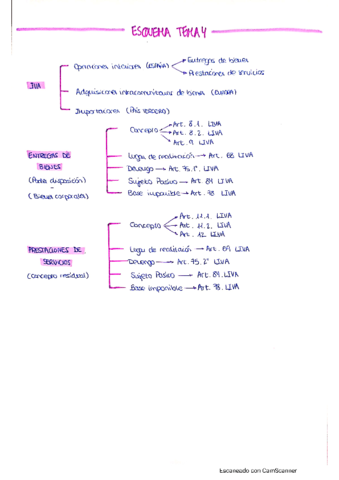 ESQUEMA TEMA 4
IVA
Operaciones interiores (ESPAÑA)
Entregas de bienes
Prestaciones de servicios
Adquisiciones intracomunitarias de bienes (EUROPA)
Importaciones (País tercero)
ENTREGAS DE BIENES
(Poder disposición)
-
(Bienes corporales)
Concepto
Art. 8.1. LIVA
Art. 8.2. LIVA
Art. 9 LIVA
Lugar de realización → Art. 68 LIVA
Devengo → Art. 75.1º. LIVA
Sujeto Pasivo → Art 84 LIVA
Base imponible → Art. 78 LIVA
PRESTACIONES DE
SERVICIOS
(Concepto residual)
Concepto
Art. 11.1. LIVA
Art. 11.2. LIVA
Art. 12. LIVA
Lugar de realización → Art. 69 LIVA
Devengo → Art. 75.2º LIVA
Sujeto Pasivo → Art. 84. LIVA
Base imponible → Art. 78. LIVA
Escaneado con CamScanner